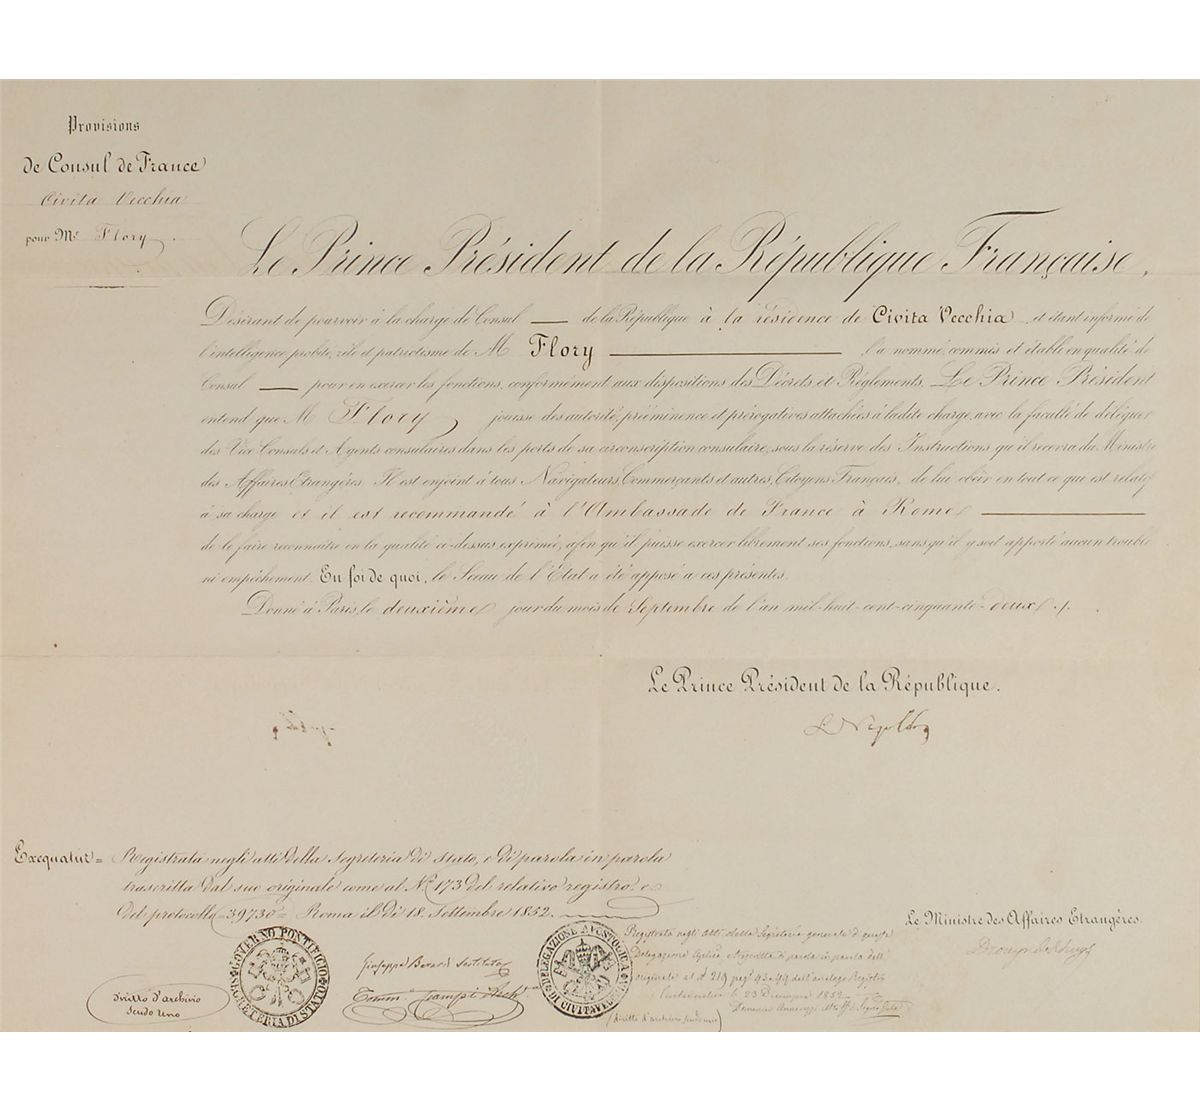 Provisions
de Consul de France
Civita Vecchia
pour Mr. Flory
Le Prince Président de la République Française,
Désirant de pourvoir à la charge de Consul — de la République à la résidence de Civita Vecchia, et étant informé de
l'intelligence, probité, zèle et patriotisme de M Flory — l'a nommé, commis et établi en qualité de
Consul — pour en exercer les fonctions, conformément aux dispositions des Décrets et Réglements. Le Prince Président
entend que M Flory jouisse des autorité, prééminence et prérogatives attachées à ladite charge, avec la faculté de déléguer
des Vice Consuls et Agents consulaires dans les ports de sa circonscription consulaire, sous la réserve des Instructions qu'il recevra du Ministre
des Affaires Etrangères. Il est enjoint à tous Navigateurs, Commerçants et autres, Citoyens Français, de lui obéir en tout ce qui est relatif
à sa charge et il est recommandé à l'Ambassade de France à Rome —
de le faire reconnaître en la qualité ci-dessus exprimée, afin qu'il puisse exercer librement ses fonctions, sans qu'il y soit apporté aucun trouble
ni empêchement. En foi de quoi, le Sceau de l'Etat a été apposé à ces présentes.
Donné à Paris, le deuxième jour du mois de Septembre de l'an mil-huit-cent-cinquante-deux ./.
Le Prince Président de la République.
Exequatur = Registrata negli atti della Segreteria di Stato, e di parola in parola
trascritta dal suo originale come al No. 173 del relativo registro e
del protocollo =39730= Roma il dì 18. Settembre 1852.
Le Ministre des Affaires Etrangères.
Drouyn de Lhuys
GOVERNO PONTIFICIO
SEGRETERIA DI STATO
DELEGAZIONE APOSTOLICA
DI CIVITAVECCHIA
diritto d'archivio
scudo uno
Giuseppe Sostituto
Registrata negli atti della Segreteria generale di questa
Delegazione Aplica e trascritta di parola in parola dall'
originale al No. 219 pag. 93.94 dell'analogo Registro
Civitavecchia li 23 1852
(diritto d'archivio